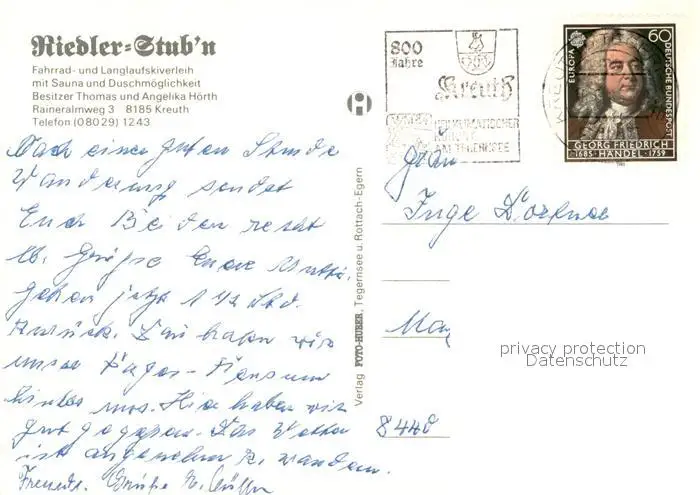 Riedler-Stub'n
Fahrrad- und Langlaufskiverleih
mit Sauna und Duschmöglichkeit
Besitzer Thomas und Angelika Hörth
Raineralmweg 3 8185 Kreuth
Telefon (08029) 1243
Nach einer guten Stunde
Wanderung sendet
Euch Beiden recht
lb. Grüße Eure Mutti.
gehen jetzt 1 1/2 Std.
zurück. Dann haben wir
unser Tages-Pensum
hinter uns. Hier haben wir
gut gegessen. Das Wetter
ist angenehm z. wandern.
Freundl. Grüße
Verlag FOTO-HUBER, Tegernsee u. Rottach-Egern
800
Jahre
Kreuth
HEILKLIMATISCHER
KURORT
AM TEGERNSEE
EUROPA
60
DEUTSCHE BUNDESPOST
GEORG FRIEDRICH
1685 HÄNDEL 1759
Inge
8440
privacy protection
Datenschutz